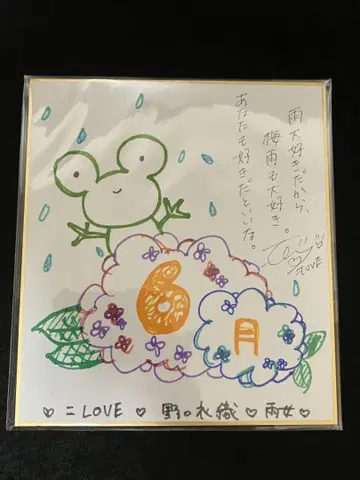 雨大好きだから、
梅雨も大好き。
あなたも好きだといいな。
ニLOVE
6
月
♡ ニLOVE ♡ 野 織 ♡ 雨女 ♡